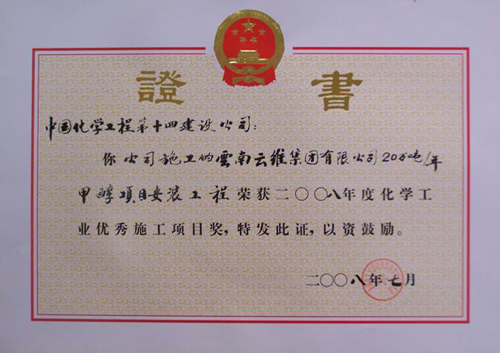 證書
中国化学工程第十四建设公司：
你公司施工的雲南云维集团有限公司20万吨/年
甲醇项目安装工程荣获二〇〇八年度化学工
业优秀施工项目奖，特发此证，以资鼓励。
二〇〇八年七月